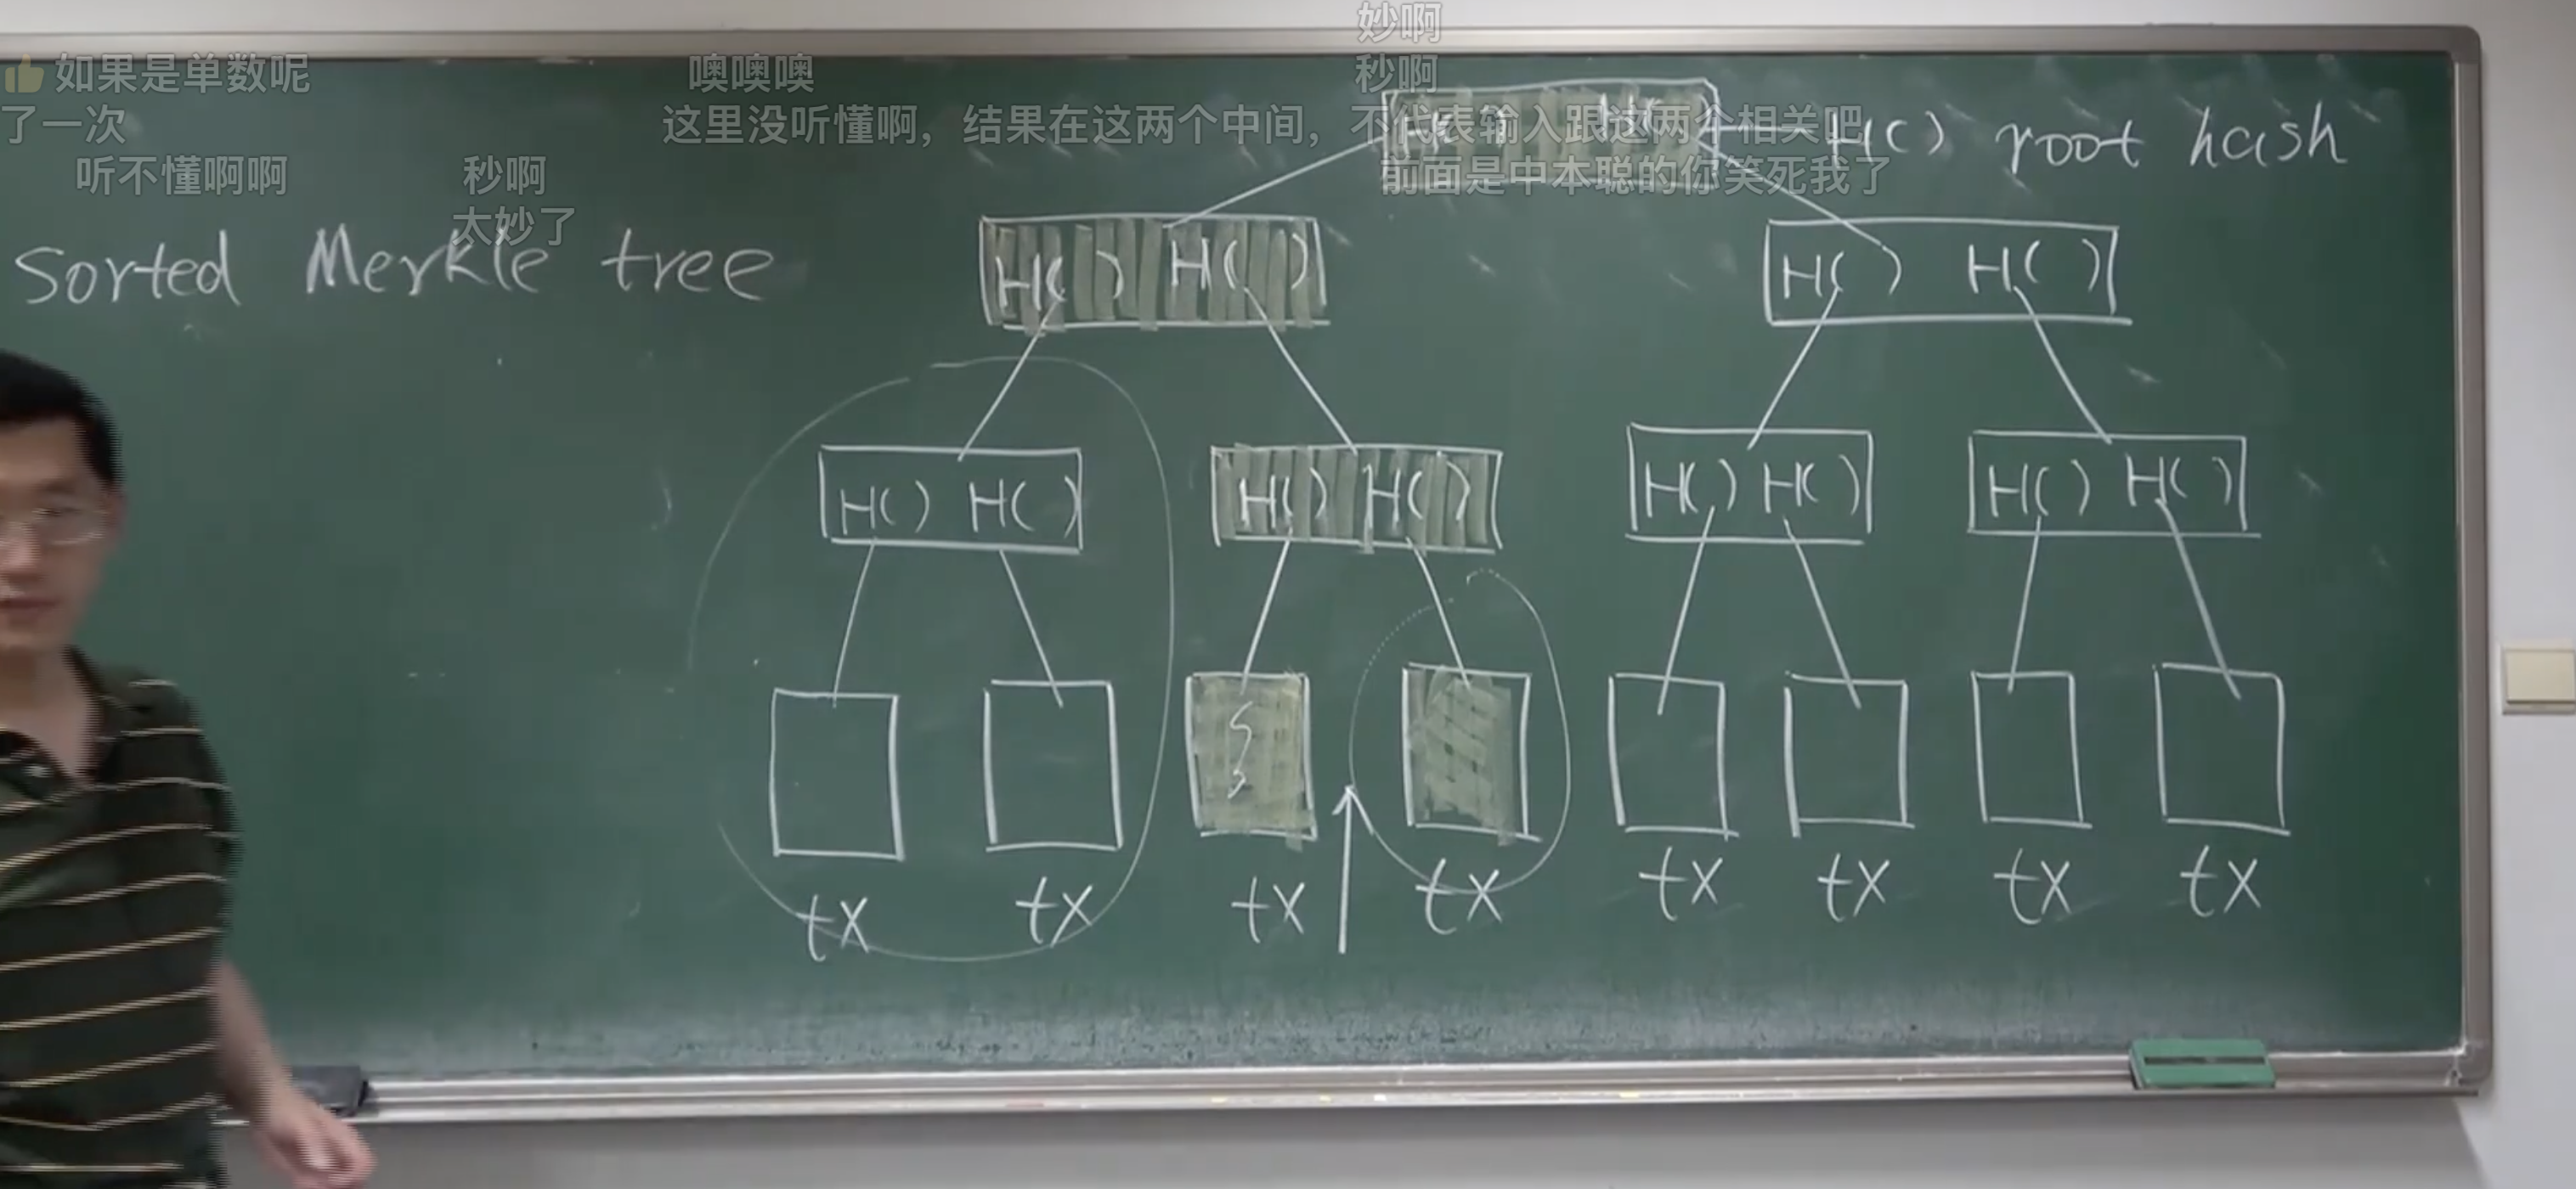 妙啊
👍如果是单数呢
噢噢噢
秒啊
了一次
这里没听懂啊，结果在这两个中间，不代表输入跟这两个相关吧
听不懂啊啊
秒啊
前面是中本聪的你笑死我了
太妙了
H( ) root hash
Sorted Merkle tree
H( ) H( )
H( ) H( )
H( ) H( )
H( ) H( )
H( ) H( )
H( ) H( )
tx tx tx tx tx tx tx tx